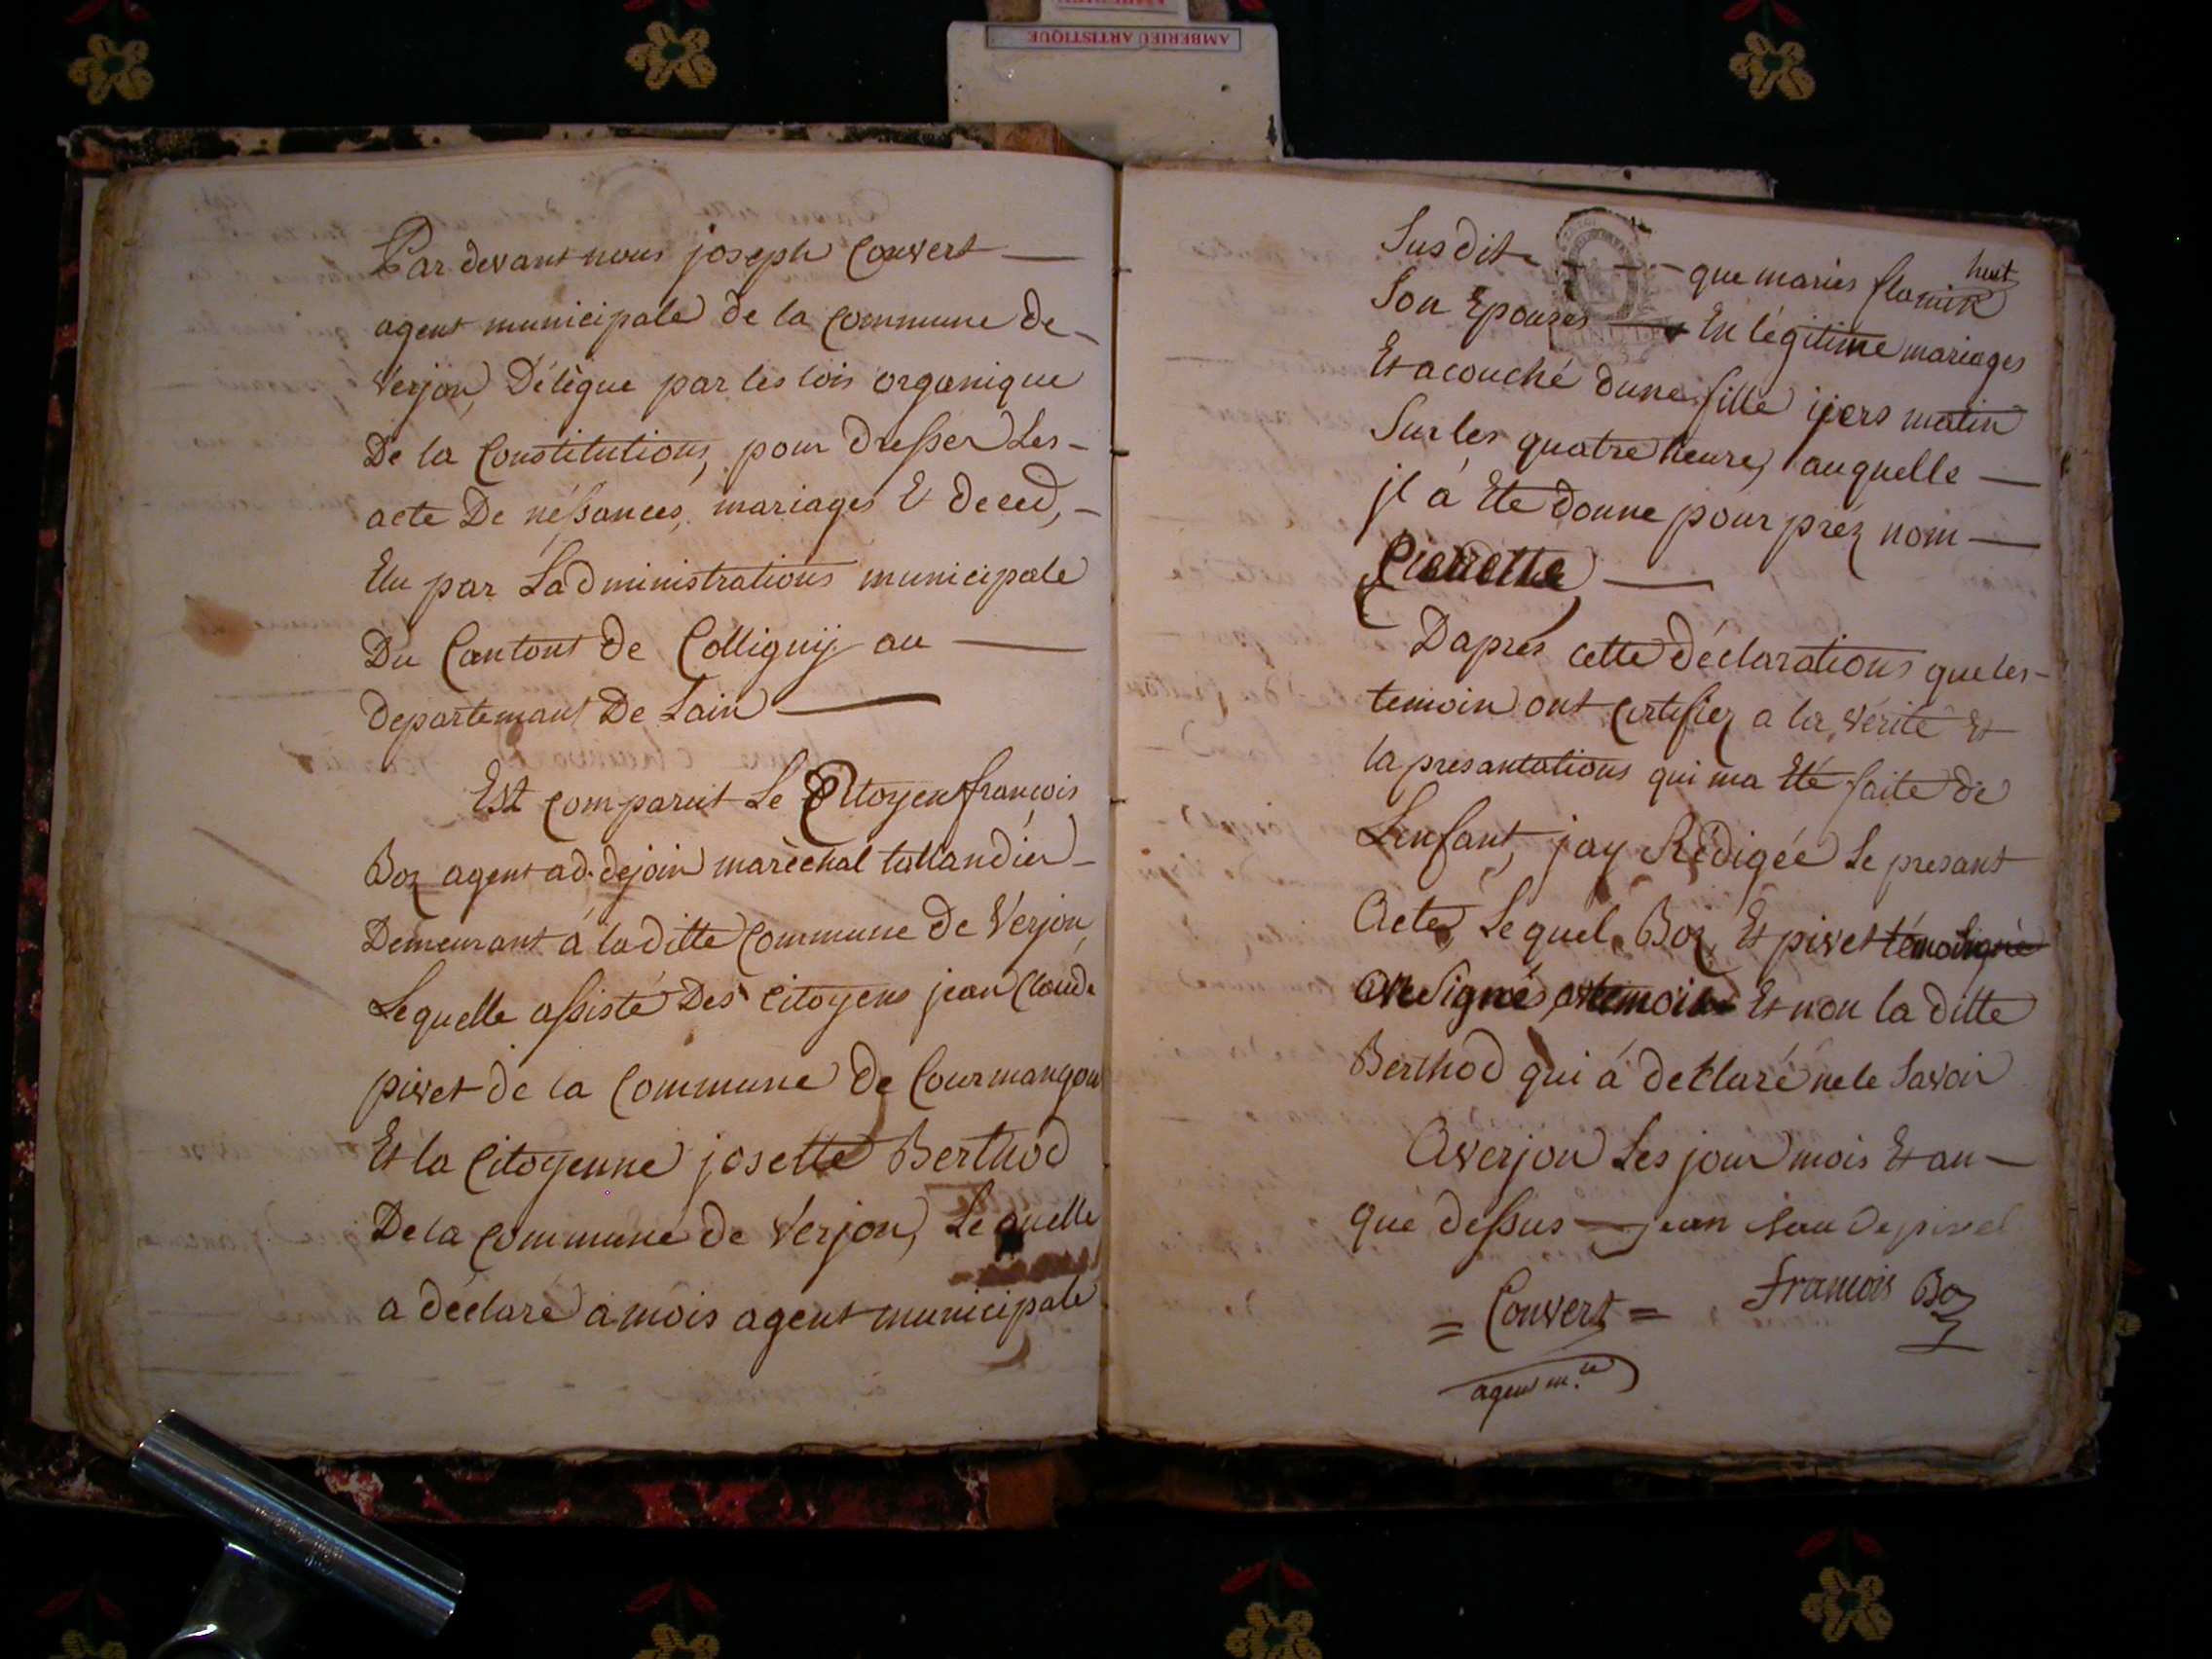 AMBERIEU ARTISTIQUE
Par devant nous joseph Convert
agent municipale de la Commune de
Verjon, Délégue par les lois organique
De la Constitutions, pour dresser Les
acte De néssances, mariages & deced,
Elu par Ladministrations municipale
Du Cantont de Colligny au
departemant De Lain
Est comparut Le Citoyen francois
Boz agent ad-dejoin maréchal tallandier
Demeurant á laditte Commune de Verjon,
Lequelle assisté Des Citoyens jean Claude
pivet de la Commune de Courmangou
Et la Citoyenne josette Berthod
De la Commune de Verjon, Lequelle
a déclaré a mois agent municipale
huit
Susdit que maries flamin
Son Epouses En légitime mariages
Et acouché dune fille jiers matin
Sur les quatre heure, auquelle
jl á Ete donne pour préz nom
Pierrette
Dapres cette déclarations que les
temoin ont certifiez a la vérité Et
la presantations qui ma Eté faite de
Lenfant, jay Rédigée Le presant
Acte, Lequel Boz Et pivet
Signés Et non la ditte
Berthod qui á declaré ne le Savoir
A verjon Les jour mois Et an
que dessus jean
= Convert = francois Boz
agent m.le